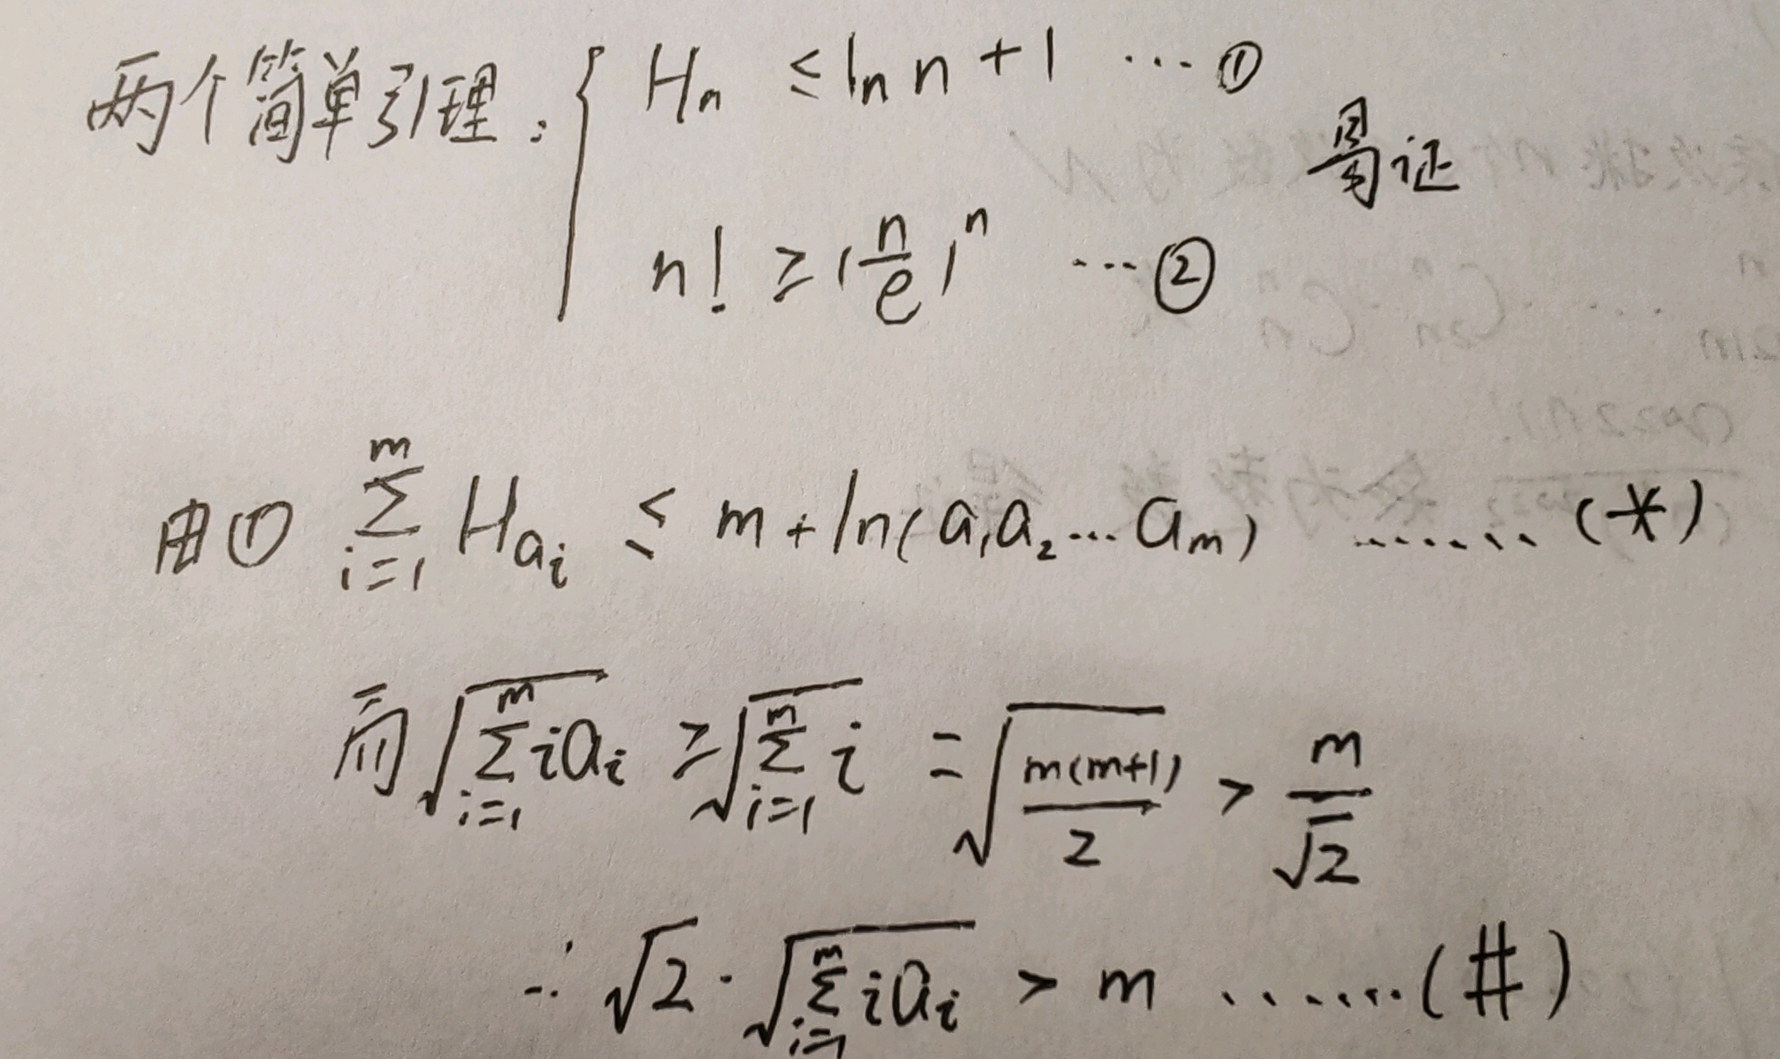 两个简单引理: { Hₙ ≤ ln n + 1 ··· ①
易证
n! ≥ (n/e)ⁿ ··· ②
由① ∑_{i=1}^{m} H_{a_i} ≤ m + ln(a₁a₂…a_m) ······· (*)
而 √(∑_{i=1}^{m} i a_i) ≥ √(∑_{i=1}^{m} i) = √(m(m+1)/2) > m/√2
∴ √2 · √(∑_{i=1}^{m} i a_i) > m ······· (#)